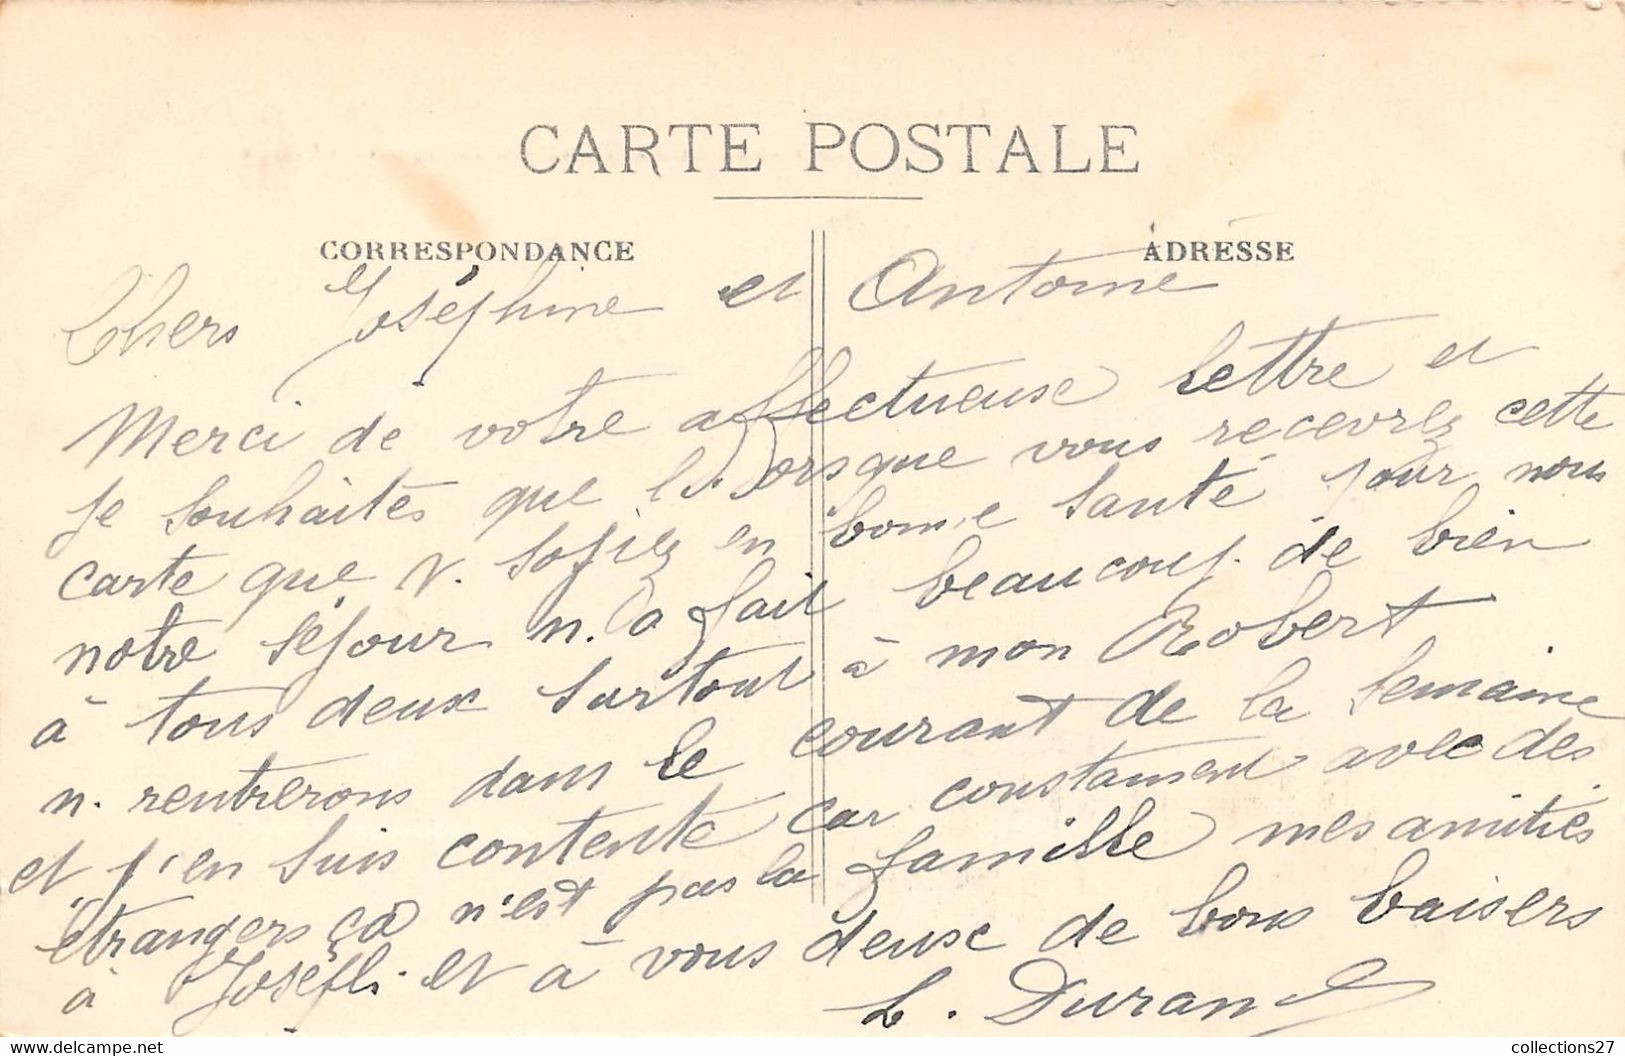 CARTE POSTALE
CORRESPONDANCE
ADRESSE
Chers Joséphine et Antoine
Merci de votre affectueuse lettre et
je souhaites que lorsque vous recevrez cette
carte que v. soyiez en bonne santé pour nous
notre séjour n. a fait beaucoup de bien
à tous deux surtout à mon Robert
n. rentrerons dans le courant de la semaine
et j'en suis contente car constament avec des
étrangers ça n'est pas la famille mes amitiés
à Joseph. et à vous deux de bons baisers
L. Durand
collections27